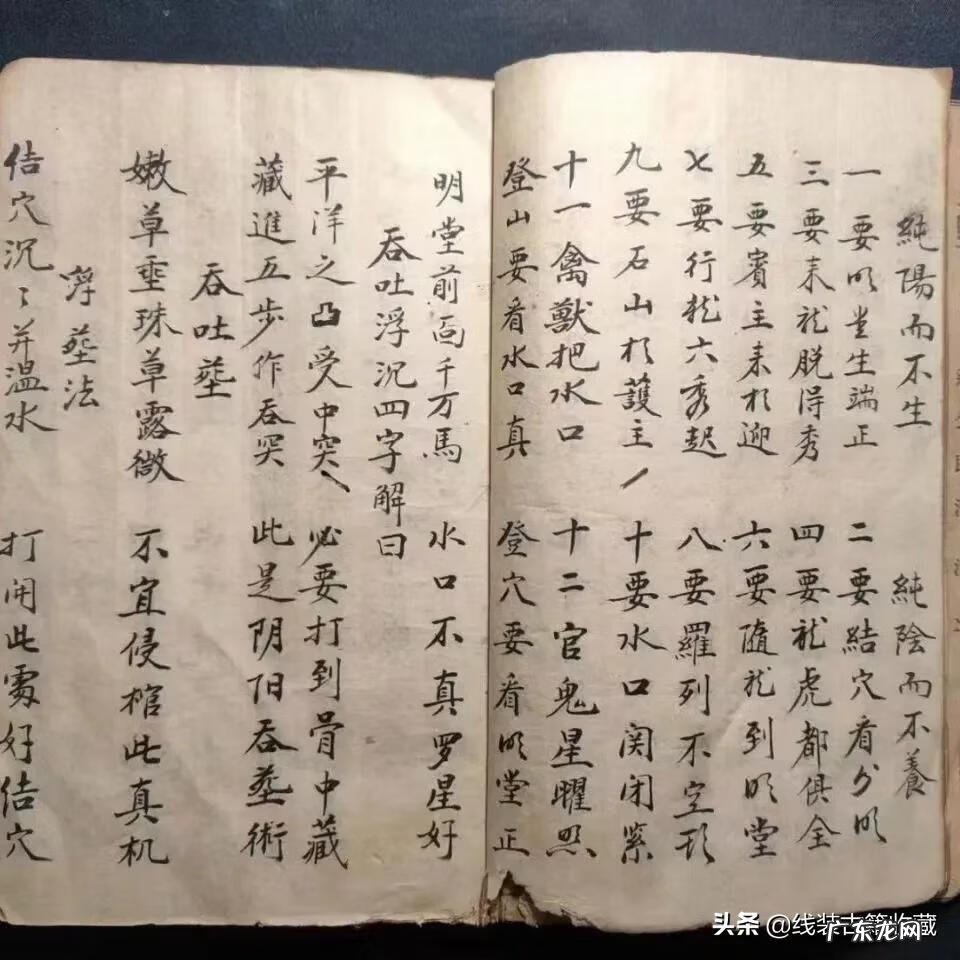 純陽而不生　純陰而不養
一要明堂生端正　二要結穴看分明
三要来龙脱得秀　四要龙虎都俱全
五要賓主来相迎　六要随龙到明堂
七要行龙六秀起　八要羅列不空
九要石山相護主　十要水口関闭紧
十一禽獸把水口　十二官鬼星曜照
登山要看水口真　登穴要看明堂正
明堂前面千万馬　水口不真罗星好
吞吐浮沉四字解曰
平洋之凸受中突　必要打到骨中藏
藏進五步作吞突　此是阴阳吞塟術
吞吐塟
嫩草垂珠草露微　不宜侵棺此真机
浮塟法
佶穴沉〻并温水　打闭此處好佶穴
头条 @线装古籍收藏
广东龙网